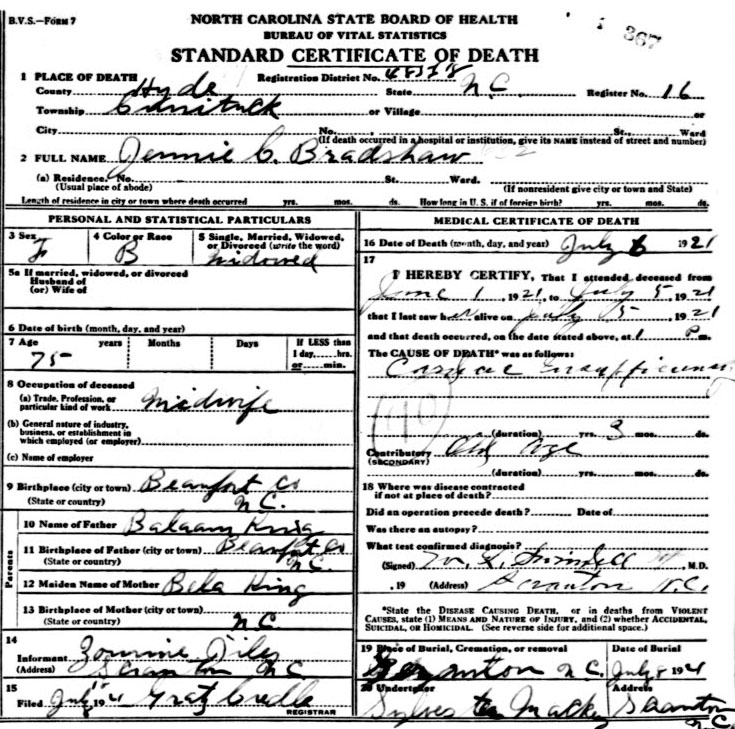 B.V.S.—FORM 7
NORTH CAROLINA STATE BOARD OF HEALTH
BUREAU OF VITAL STATISTICS
STANDARD CERTIFICATE OF DEATH
367
1 PLACE OF DEATH
Registration District No.
County Hyde State N.C. Register No. 16
Township or Village or
City No. St., Ward
(If death occurred in a hospital or institution, give its NAME instead of street and number)
2 FULL NAME Jennie C. Bradshaw
(a) Residence. No. St. Ward.
(Usual place of abode) (If nonresident give city or town and State)
Length of residence in city or town where death occurred yrs. mos. ds. How long in U.S. if of foreign birth? yrs. mos. ds.
PERSONAL AND STATISTICAL PARTICULARS
3 Sex F
4 Color or Race B
5 Single, Married, Widowed, or Divorced (write the word) Widowed
5a If married, widowed, or divorced
Husband of
(or) Wife of
6 Date of birth (month, day, and year)
7 Age years Months Days If LESS than
75 1 day,......hrs.
or......min.
8 Occupation of deceased
(a) Trade, Profession, or
particular kind of work Midwife
(b) General nature of industry,
business, or establishment in
which employed (or employer)
(c) Name of employer
9 Birthplace (city or town) Beaufort Co
(State or country) N.C.
Parents
10 Name of Father King
11 Birthplace of Father (city or town) Beaufort Co
(State or country) N.C.
12 Maiden Name of Mother King
13 Birthplace of Mother (city or town)
(State or country) N.C.
14
Informant
(Address) Scranton N C
15
Filed July 1921 Credle
REGISTRAR
MEDICAL CERTIFICATE OF DEATH
16 Date of Death (month, day, and year) July 6 1921
17
I HEREBY CERTIFY, That I attended deceased from
June 1, 1921, to July 5, 1921
that I last saw her alive on July 5, 1921
and that death occurred, on the date stated above, at 1 P m.
The CAUSE OF DEATH* was as follows:
Cardiac Insufficiency
(90)
(duration) yrs. 3 mos. ds.
Contributory Old Age
(SECONDARY)
(duration) yrs. mos. ds.
18 Where was disease contracted
if not at place of death?
Did an operation precede death? Date of
Was there an autopsy?
What test confirmed diagnosis?
(Signed) Swindell, M.D.
, 19 (Address) Scranton N.C.
*State the DISEASE CAUSING DEATH, or in deaths from VIOLENT
CAUSES, state (1) MEANS AND NATURE OF INJURY, and (2) whether ACCIDENTAL,
SUICIDAL, OR HOMICIDAL. (See reverse side for additional space.)
19 Place of Burial, Cremation, or removal Date of Burial
Scranton N.C. July 8 1921
20 Undertaker Address
Sylvester Mackey Scranton
N.C.